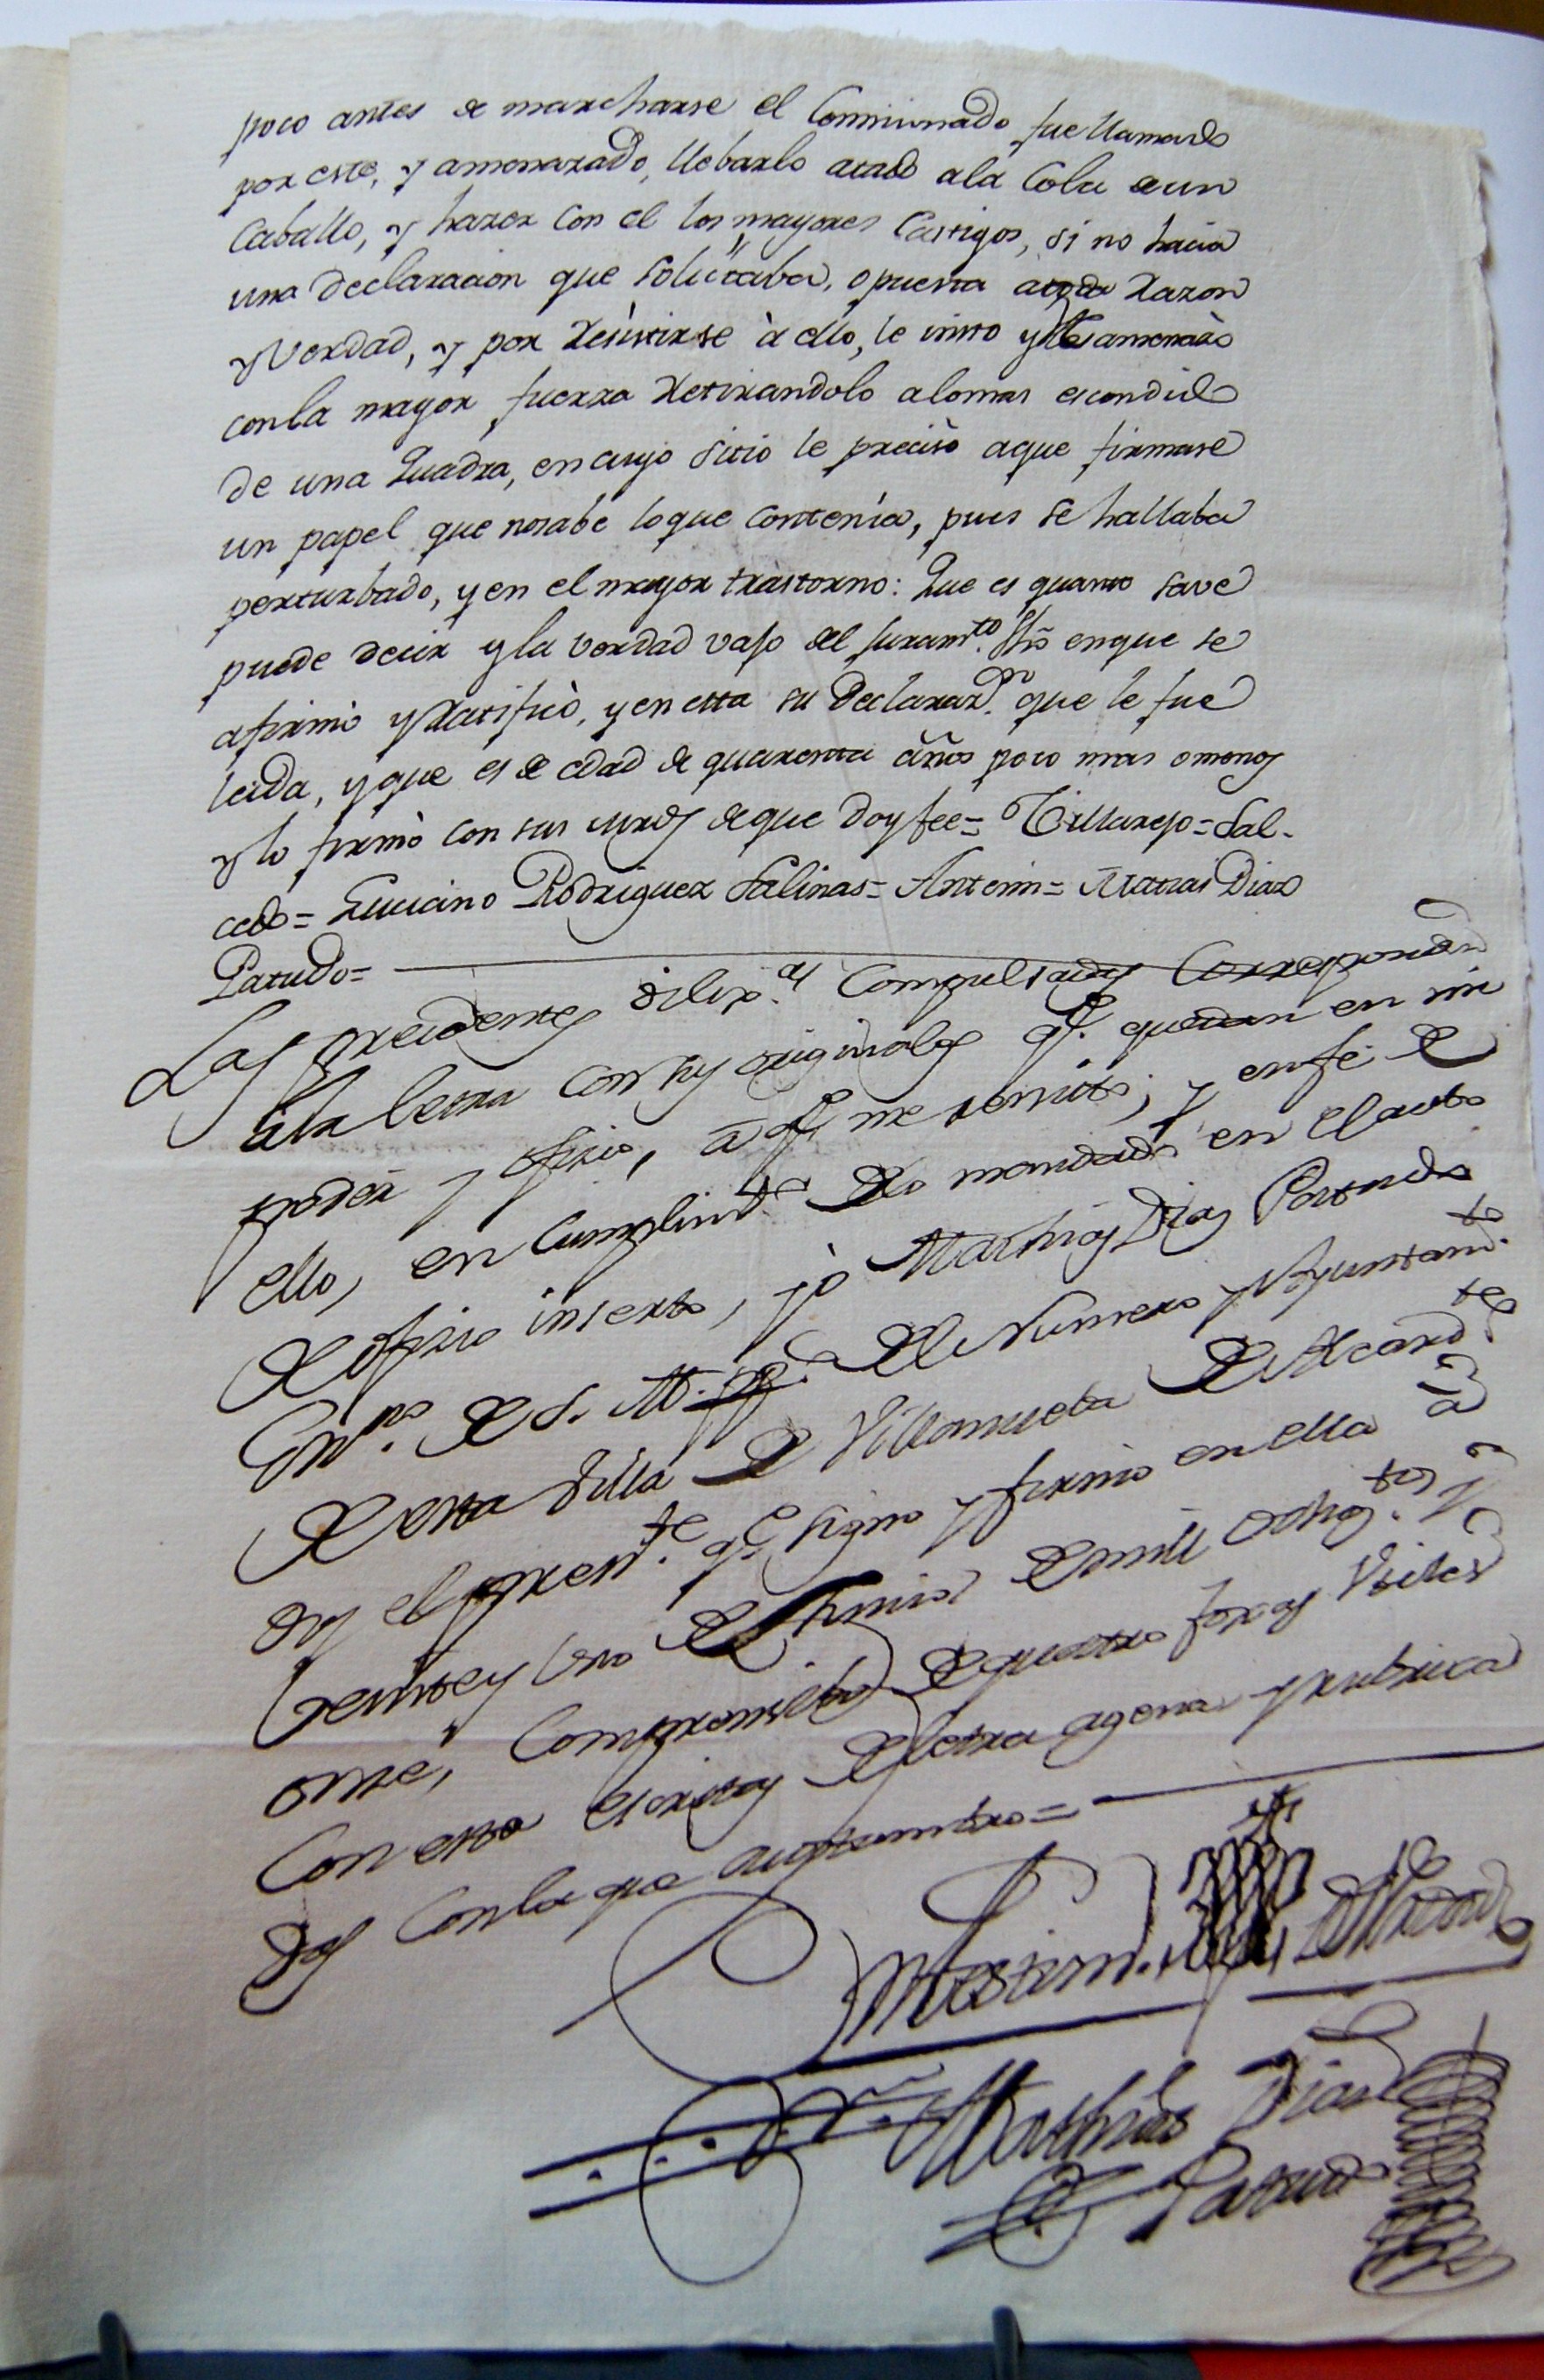 poco antes de marcharse el Comisionado fue llamado
por este, y amenazado, llebarlo atado ala Cola de un
Caballo, y hazer con el los mayores Castigos, si no hacia
una declaracion que solicitaba, opuesta atoda Razon
y Verdad, y por Resistirse à ello, le insto y amenazò
con la mayor fuerza Retirandolo alomas escondido
de una Quadra, en cuyo sitio le precisò aque firmase
un papel que nosabe loque Contenía, pues se hallaba
perturbado, y en el mayor trastorno: Que es quanto save
puede decir y la verdad vajo del juram.to dho enque se
afirmò y Ratificò, y en esta su Declaraz.on que le fue
leida, y que es de edad de quarenta años poco mas omenos
y lo firmò con sus mrds de que doy fee= Villarejo= Sal-
cedo= Luciano Rodriguez Salinas= Antemi= Matias Diaz
Patudo=
Las precedentes dilix.as Compulsadas Corresponden
à la letra con sus originales q.e quedan en mi
poder y oficio, à q.e me remito; y en fe de
ello, en Cumplim.to de lo mandado en el auto
de oficio inserto, yo Mathias Diaz Patudo
Esn.no de S. M. del Numero y Ayuntam.to
de esta Villa de Villanueba de Alcard.te
doy el presen.te q.e signo y firmo en ella à
Veinte y uno de Junio de mill ochoz.tos
onze, Comprensibo de quatro foxas Utiles
Con esta escritas de letra agena y rubrica
das Con la que acostumbro=
En testim.o de Verdad
Mathias Diaz
Patudo